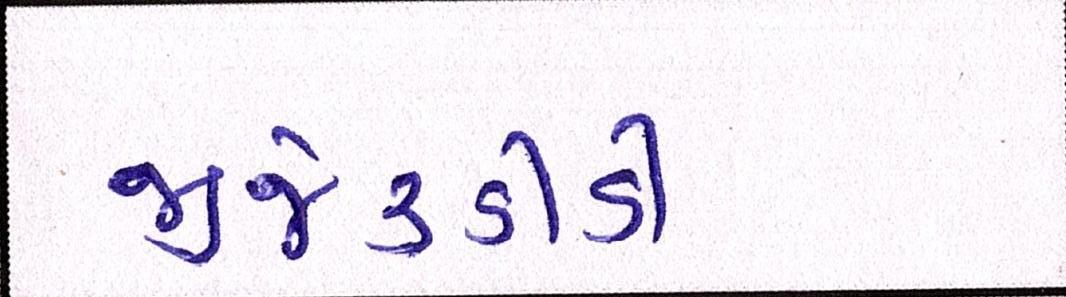 જીજે૩ડીડી